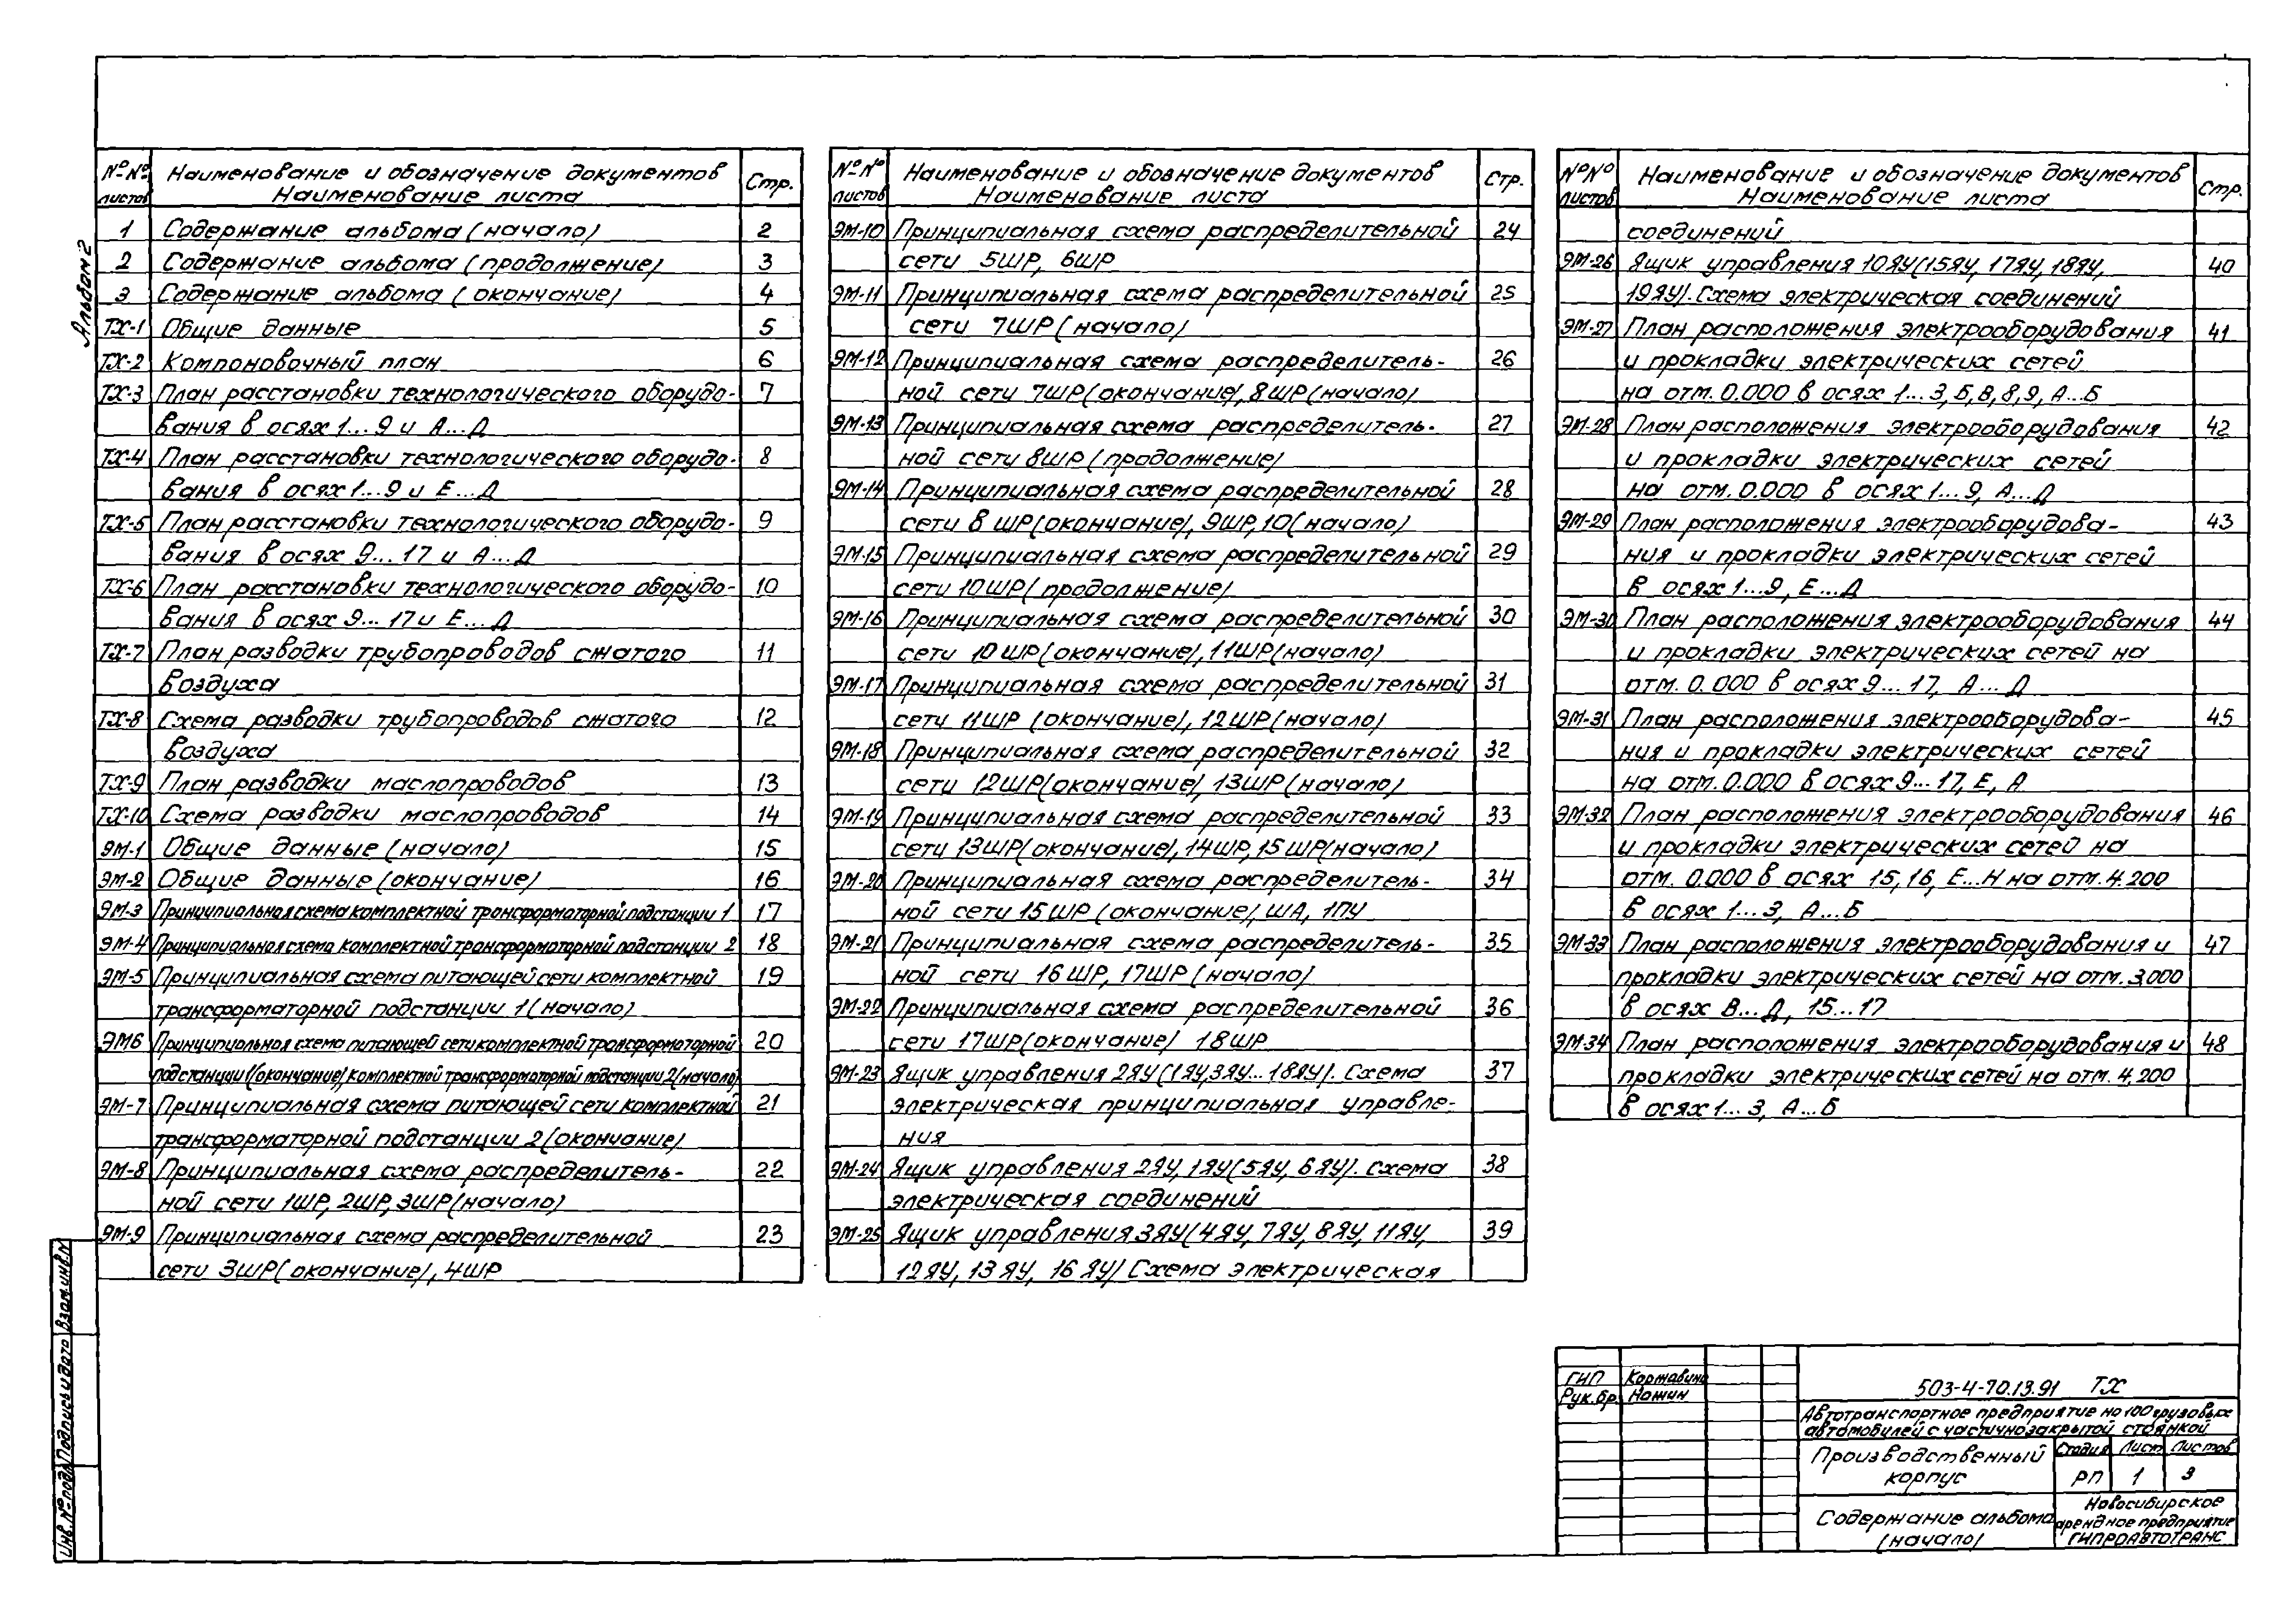 Альбом 2
№№ листов Наименование и обозначение документов Наименование листа Стр.
1 Содержание альбома (начало) 2
2 Содержание альбома (продолжение) 3
3 Содержание альбома (окончание) 4
ТХ-1 Общие данные 5
ТХ-2 Компоновочный план 6
ТХ-3 План расстановки технологического оборудо- 7
вания в осях 1...9 и А...Д
ТХ-4 План расстановки технологического оборудо- 8
вания в осях 1...9 и Е...Д
ТХ-5 План расстановки технологического оборудо- 9
вания в осях 9...17 и А...Д
ТХ-6 План расстановки технологического оборудо- 10
вания в осях 9...17 и Е...Д
ТХ-7 План разводки трубопроводов сжатого 11
воздуха
ТХ-8 Схема разводки трубопроводов сжатого 12
воздуха
ТХ-9 План разводки маслопроводов 13
ТХ-10 Схема разводки маслопроводов 14
ЭМ-1 Общие данные (начало) 15
ЭМ-2 Общие данные (окончание) 16
ЭМ-3 Принципиальная схема комплектной трансформаторной подстанции 1 17
ЭМ-4 Принципиальная схема комплектной трансформаторной подстанции 2 18
ЭМ-5 Принципиальная схема питающей сети комплектной 19
трансформаторной подстанции 1 (начало)
ЭМ6 Принципиальная схема питающей сети комплектной трансформаторной 20
подстанции 1 (окончание) комплектной трансформаторной подстанции 2 (начало)
ЭМ-7 Принципиальная схема питающей сети комплектной 21
трансформаторной подстанции 2 (окончание)
ЭМ-8 Принципиальная схема распределитель- 22
ной сети 1ШР, 2ШР, 3ШР (начало)
ЭМ-9 Принципиальная схема распределительной 23
сети 3ШР (окончание), 4ШР
№№ листов Наименование и обозначение документов Наименование листа Стр.
ЭМ-10 Принципиальная схема распределительной 24
сети 5ШР, 6ШР
ЭМ-11 Принципиальная схема распределительной 25
сети 7ШР (начало)
ЭМ-12 Принципиальная схема распределитель- 26
ной сети 7ШР (окончание), 8ШР (начало)
ЭМ-13 Принципиальная схема распределитель- 27
ной сети 8ШР (продолжение)
ЭМ-14 Принципиальная схема распределительной 28
сети 8 ШР (окончание), 9ШР, 10 (начало)
ЭМ-15 Принципиальная схема распределительной 29
сети 10ШР (продолжение)
ЭМ-16 Принципиальная схема распределительной 30
сети 10 ШР (окончание), 11ШР (начало)
ЭМ-17 Принципиальная схема распределительной 31
сети 11ШР (окончание), 12ШР (начало)
ЭМ-18 Принципиальная схема распределительной 32
сети 12ШР (окончание), 13ШР (начало)
ЭМ-19 Принципиальная схема распределительной 33
сети 13ШР (окончание), 14ШР, 15ШР (начало)
ЭМ-20 Принципиальная схема распределитель- 34
ной сети 15 ШР (окончание), ША, 1ПУ
ЭМ-21 Принципиальная схема распределитель- 35
ной сети 16 ШР, 17ШР (начало)
ЭМ-22 Принципиальная схема распределительной 36
сети 17ШР (окончание) 18ШР
ЭМ-23 Ящик управления 2ЯУ (1ЯУ, 3ЯУ...18ЯУ). Схема 37
электрическая принципиальная управле-
ния
ЭМ-24 Ящик управления 2ЯУ, 1ЯУ (5ЯУ, 6ЯУ). Схема 38
электрическая соединений
ЭМ-25 Ящик управления 3ЯУ (4ЯУ, 7ЯУ, 8ЯУ, 11ЯУ, 39
12ЯУ, 13ЯУ, 16ЯУ) Схема электрическая
№№ листов Наименование и обозначение документов Наименование листа Стр.
соединений
ЭМ-26 Ящик управления 10ЯУ (15ЯУ, 17ЯУ, 18ЯУ, 40
19ЯУ). Схема электрическая соединений
ЭМ-27 План расположения электрооборудования 41
и прокладки электрических сетей
на отм. 0.000 в осях 1...3, Б, В, 8, 9, А...Б
ЭМ-28 План расположения электрооборудования 42
и прокладки электрических сетей
на отм. 0.000 в осях 1...9, А...Д
ЭМ-29 План расположения электрооборудова- 43
ния и прокладки электрических сетей
в осях 1...9, Е...Д
ЭМ-30 План расположения электрооборудования 44
и прокладки электрических сетей на
отм. 0.000 в осях 9...17, А...Д
ЭМ-31 План расположения электрооборудова- 45
ния и прокладки электрических сетей
на отм. 0.000 в осях 9...17, Е, А
ЭМ-32 План расположения электрооборудования 46
и прокладки электрических сетей на
отм. 0.000 в осях 15, 16, Е...Н на отм. 4.200
в осях 1...3, А...Б
ЭМ-33 План расположения электрооборудования и 47
прокладки электрических сетей на отм. 3.000
в осях В...Д, 15...17
ЭМ-34 План расположения электрооборудования и 48
прокладки электрических сетей на отм. 4.200
в осях 1...3, А...Б
Инв.№подл Подпись и дата Взам.инв.№
ГИП Коржавина
Рук.бр. Нажин
503-4-70.13.91 ТХ
Автотранспортное предприятие на 100 грузовых
автомобилей с частично закрытой стоянкой
Производственный
корпус
Стадия Лист Листов
РП 1 3
Содержание альбома
(начало)
Новосибирское
арендное предприятие
ГИПРОАВТОТРАНС